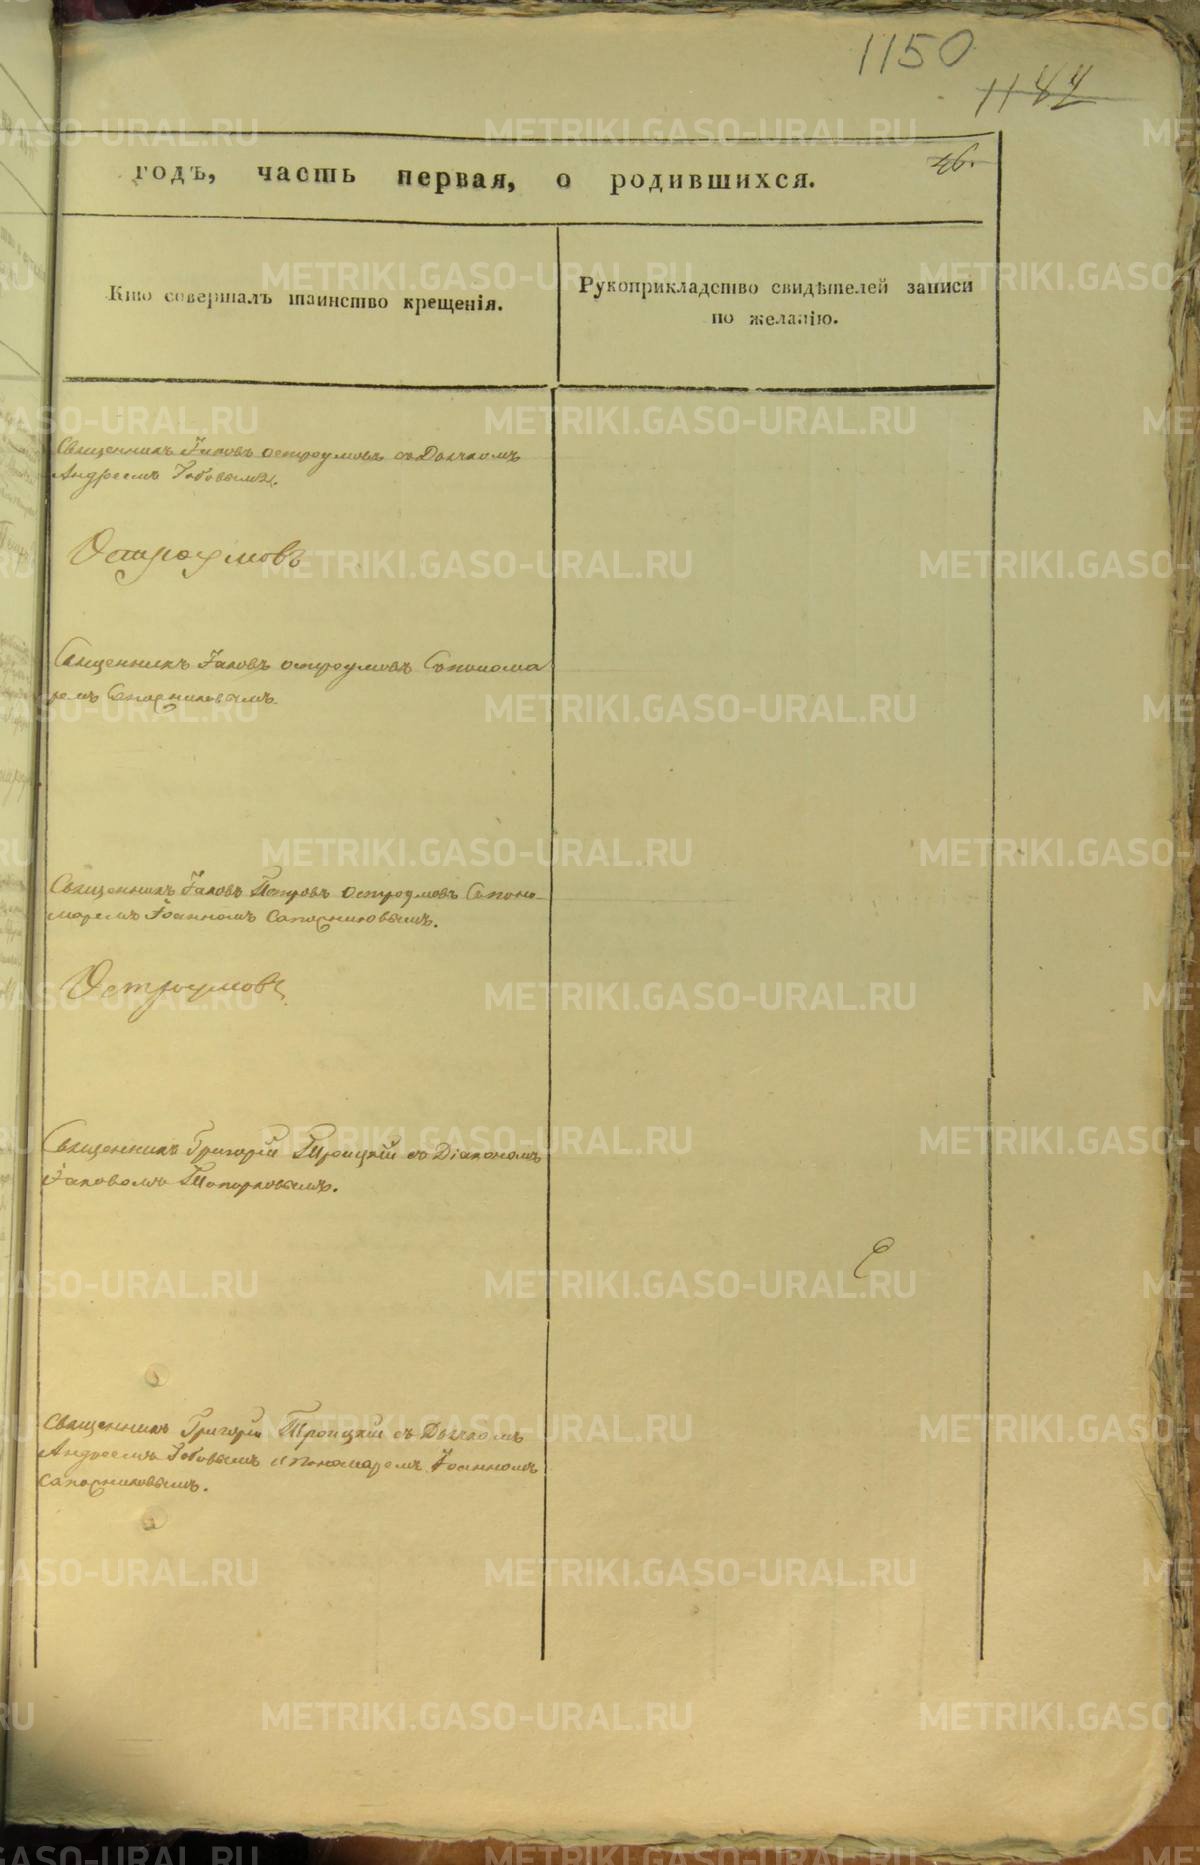 1150
1184
46.
годъ, часть первая, о родившихся.
Кто совершалъ таинство крещенія.
Рукоприкладство свидѣтелей записи
по желанію.
Священникъ Іаковъ Остроумовъ съ Дьячкомъ
Андреемъ
Остроумовъ
Священникъ Іаковъ Остроумовъ Съпонома
ремъ Сапожниковымъ
Священникъ Іаковъ Петровъ Остроумовъ Съпоно-
маремъ Іоанномъ Сапожниковымъ.
Остроумовъ
Священникъ Григорій Троицкій съ Діакономъ
Іаковомъ Топорковымъ.
Священникъ Григорій Троицкій съ Дьячкомъ
Андреемъ и Пономаремъ Іоанномъ
Сапожниковымъ.
METRIKI.GASO-URAL.RU